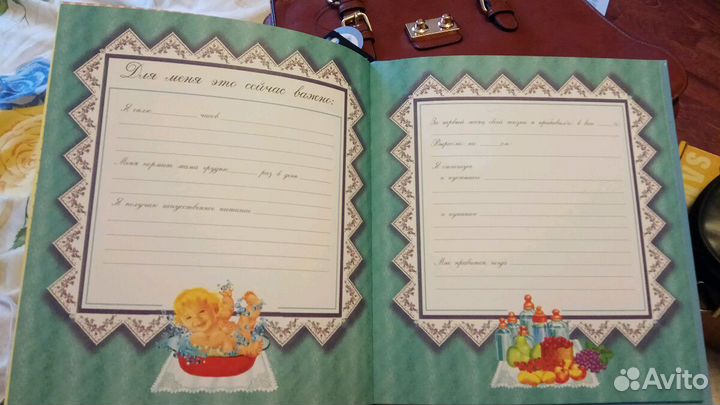 Для меня это сейчас важно:
Я сплю часов
Меня кормит мама грудью раз в день
Я получаю искусственное питание
За первый месяц своей жизни я прибавил(а) в весе г
Вырос(ла) на см
Я спокоен
в
и купании
Мне нравится, когда
Avito